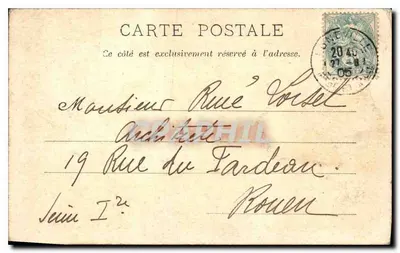 CARTE POSTALE
Ce côté est exclusivement réservé à l'adresse.
LUNEVILLE
20 40
05
Monsieur René Loisel
Architecte
19 Rue du Fardeau
Rouen
Seine Ire